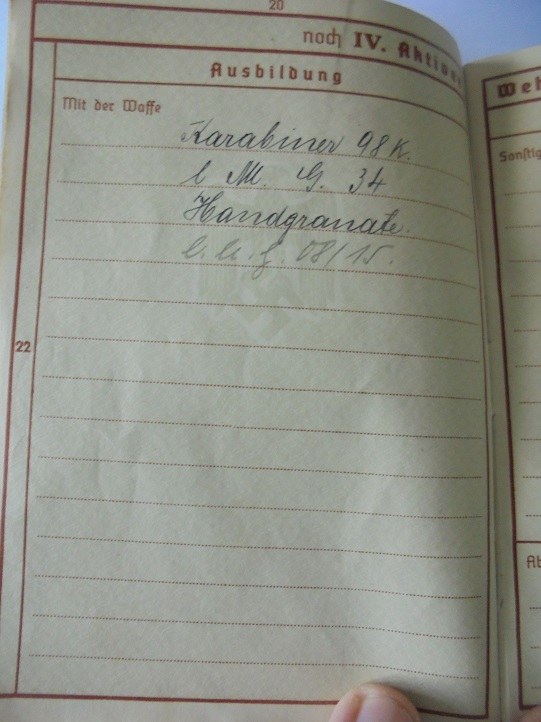 20
noch IV. Aktive
Ausbildung
Mit der Waffe
Karabiner 98 K.
l M. G. 34
Handgranate.
l. M. G. 08/15.
22
Weh
Sonstig
Ab